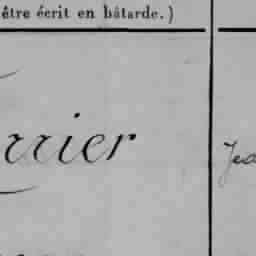 être écrit en bâtarde.)
rrier
Jea